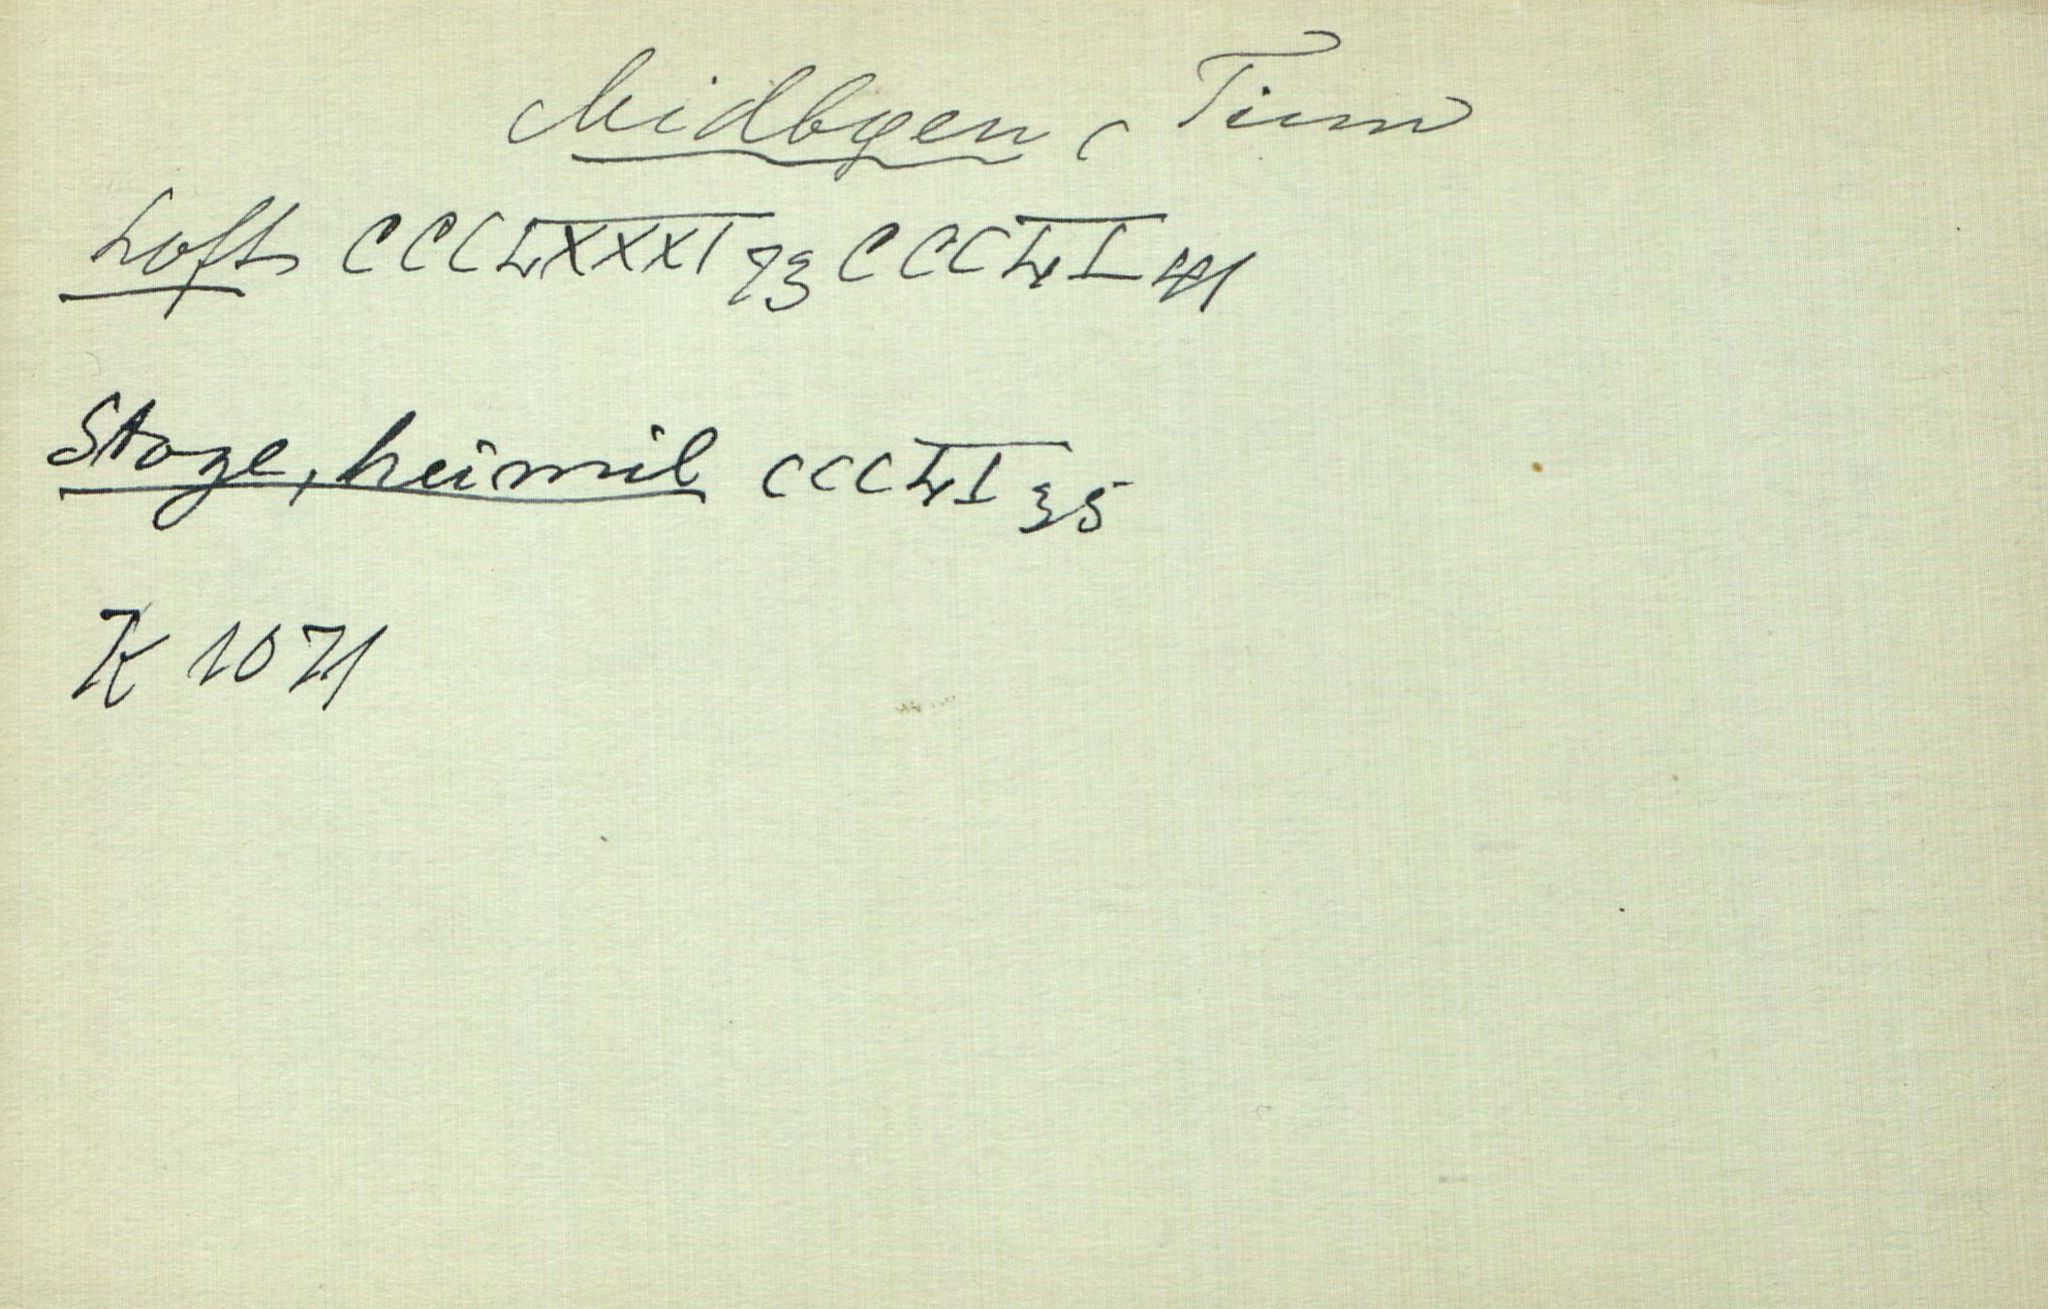 Midbgen, Tinn
Loft CCCLXXXI 73 CCCLI 41
Stoge, heimil CCCLI 35
K 1071